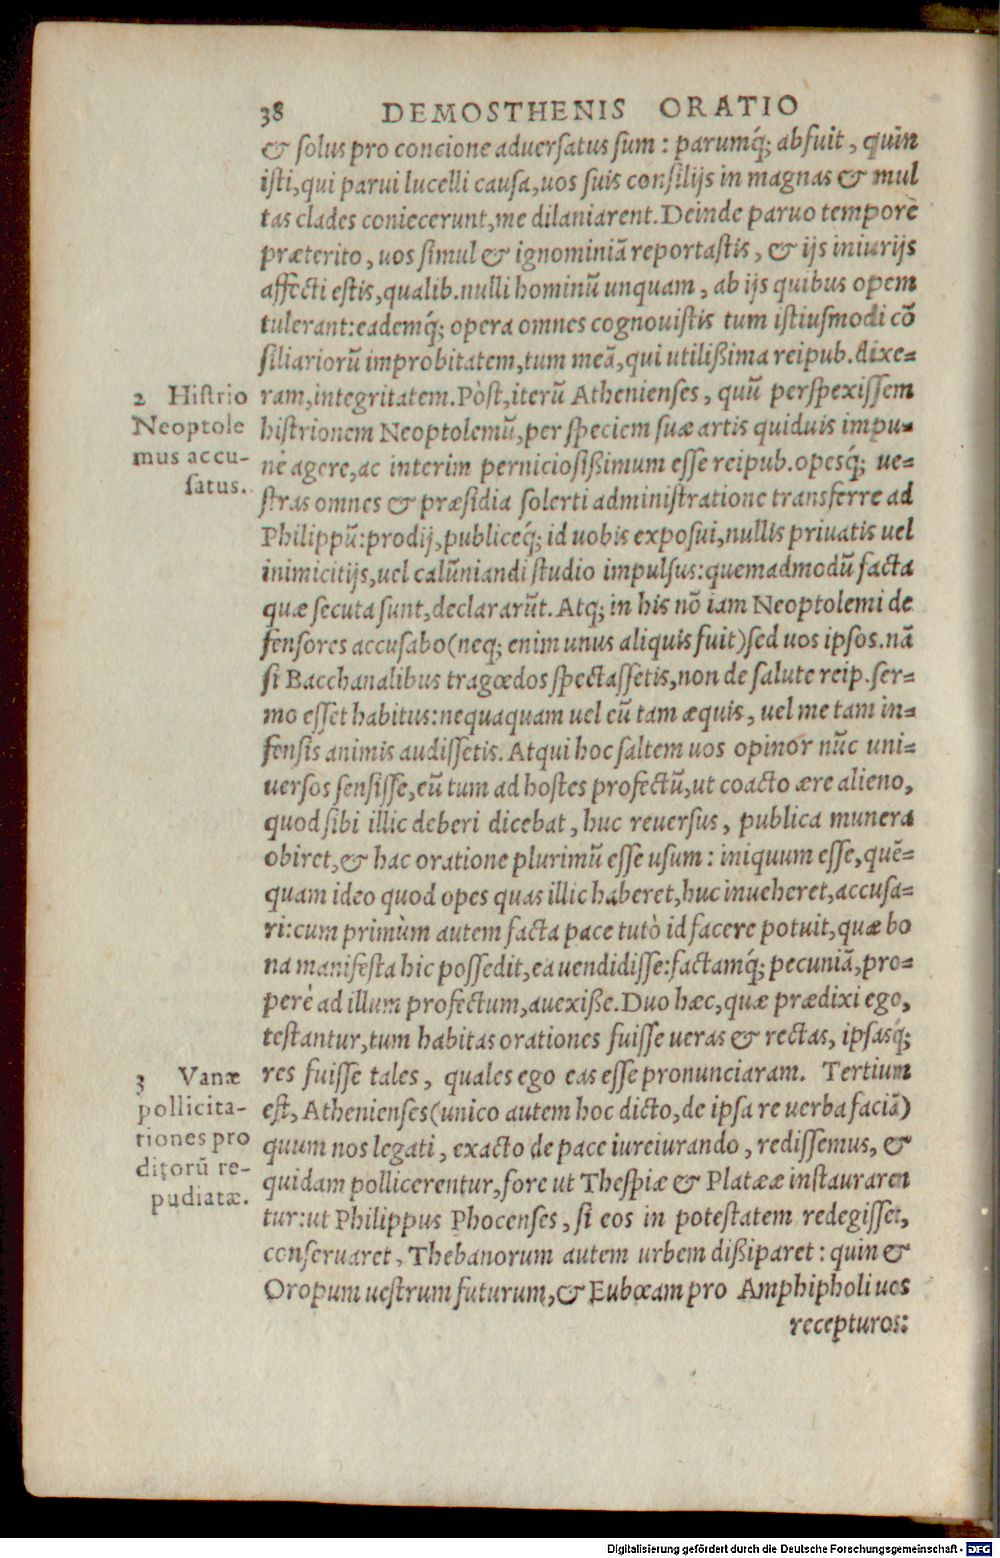 38 DEMOSTHENIS ORATIO
& solus pro concione aduersatus sum : parumq́; abfuit, quin
isti, qui parui lucelli causa, uos suis consilijs in magnas & mul
tas clades coniecerunt, me dilaniarent. Deinde paruo tempore
præterito, uos simul & ignominiā reportastis, & ijs iniurijs
affecti estis, qualib. nulli hominū unquam, ab ijs quibus opem
tulerant: eademq́; opera omnes cognouistis tum istiusmodi cō
siliariorū improbitatem, tum meā, qui utilißima reipub. dixe-
2 Histrio
Neoptole
mus accu-
satus.
ram, integritatem. Pòst, iterū Athenienses, quū perspexissem
histrionem Neoptolemū, per speciem suæ artis quiduis impu-
nè agere, ac interim perniciosißimum esse reipub. opesq́; ue-
stras omnes & præsidia solerti administratione transferre ad
Philippū: prodij, publiceq́; id uobis exposui, nullis priuatis uel
inimicitijs, uel calūniandi studio impulsus: quemadmodū facta
quæ secuta sunt, declararūt. Atq; in his nō iam Neoptolemi de
fensores accusabo (neq; enim unus aliquis fuit) sed uos ipsos. nā
si Bacchanalibus tragœdos spectassetis, non de salute reip. ser-
mo esset habitus: nequaquam uel eū tam æquis, uel me tam in-
fensis animis audissetis. Atqui hoc saltem uos opinor nūc uni-
uersos sensisse, eū tum ad hostes profectū, ut coacto ære alieno,
quod sibi illic deberi dicebat, huc reuersus, publica munera
obiret, & hac oratione plurimū esse usum : iniquum esse, quē-
quam ideo quod opes quas illic haberet, huc inueheret, accusa-
ri: cum primùm autem facta pace tutò id facere potuit, quæ bo
na manifesta hic possedit, ea uendidisse: factamq́; pecuniā, pro-
perè ad illum profectum, auexiße. Duo hæc, quæ prædixi ego,
testantur, tum habitas orationes fuisse ueras & rectas, ipsasq́;
3 Vanæ
pollicita-
tiones pro
ditorū re-
pudiatæ.
res fuisse tales, quales ego eas esse pronunciaram. Tertium
est, Athenienses (unico autem hoc dicto, de ipsa re uerba faciā)
quum nos legati, exacto de pace iureiurando, redissemus, &
quidam pollicerentur, fore ut Thespiæ & Platææ instauraren
tur: ut Philippus Phocenses, si eos in potestatem redegisset,
conseruaret, Thebanorum autem urbem dißiparet : quin &
Oropum uestrum futurum, & Eubœam pro Amphipholi uos
recepturos:
Digitalisierung gefördert durch die Deutsche Forschungsgemeinschaft - DFG